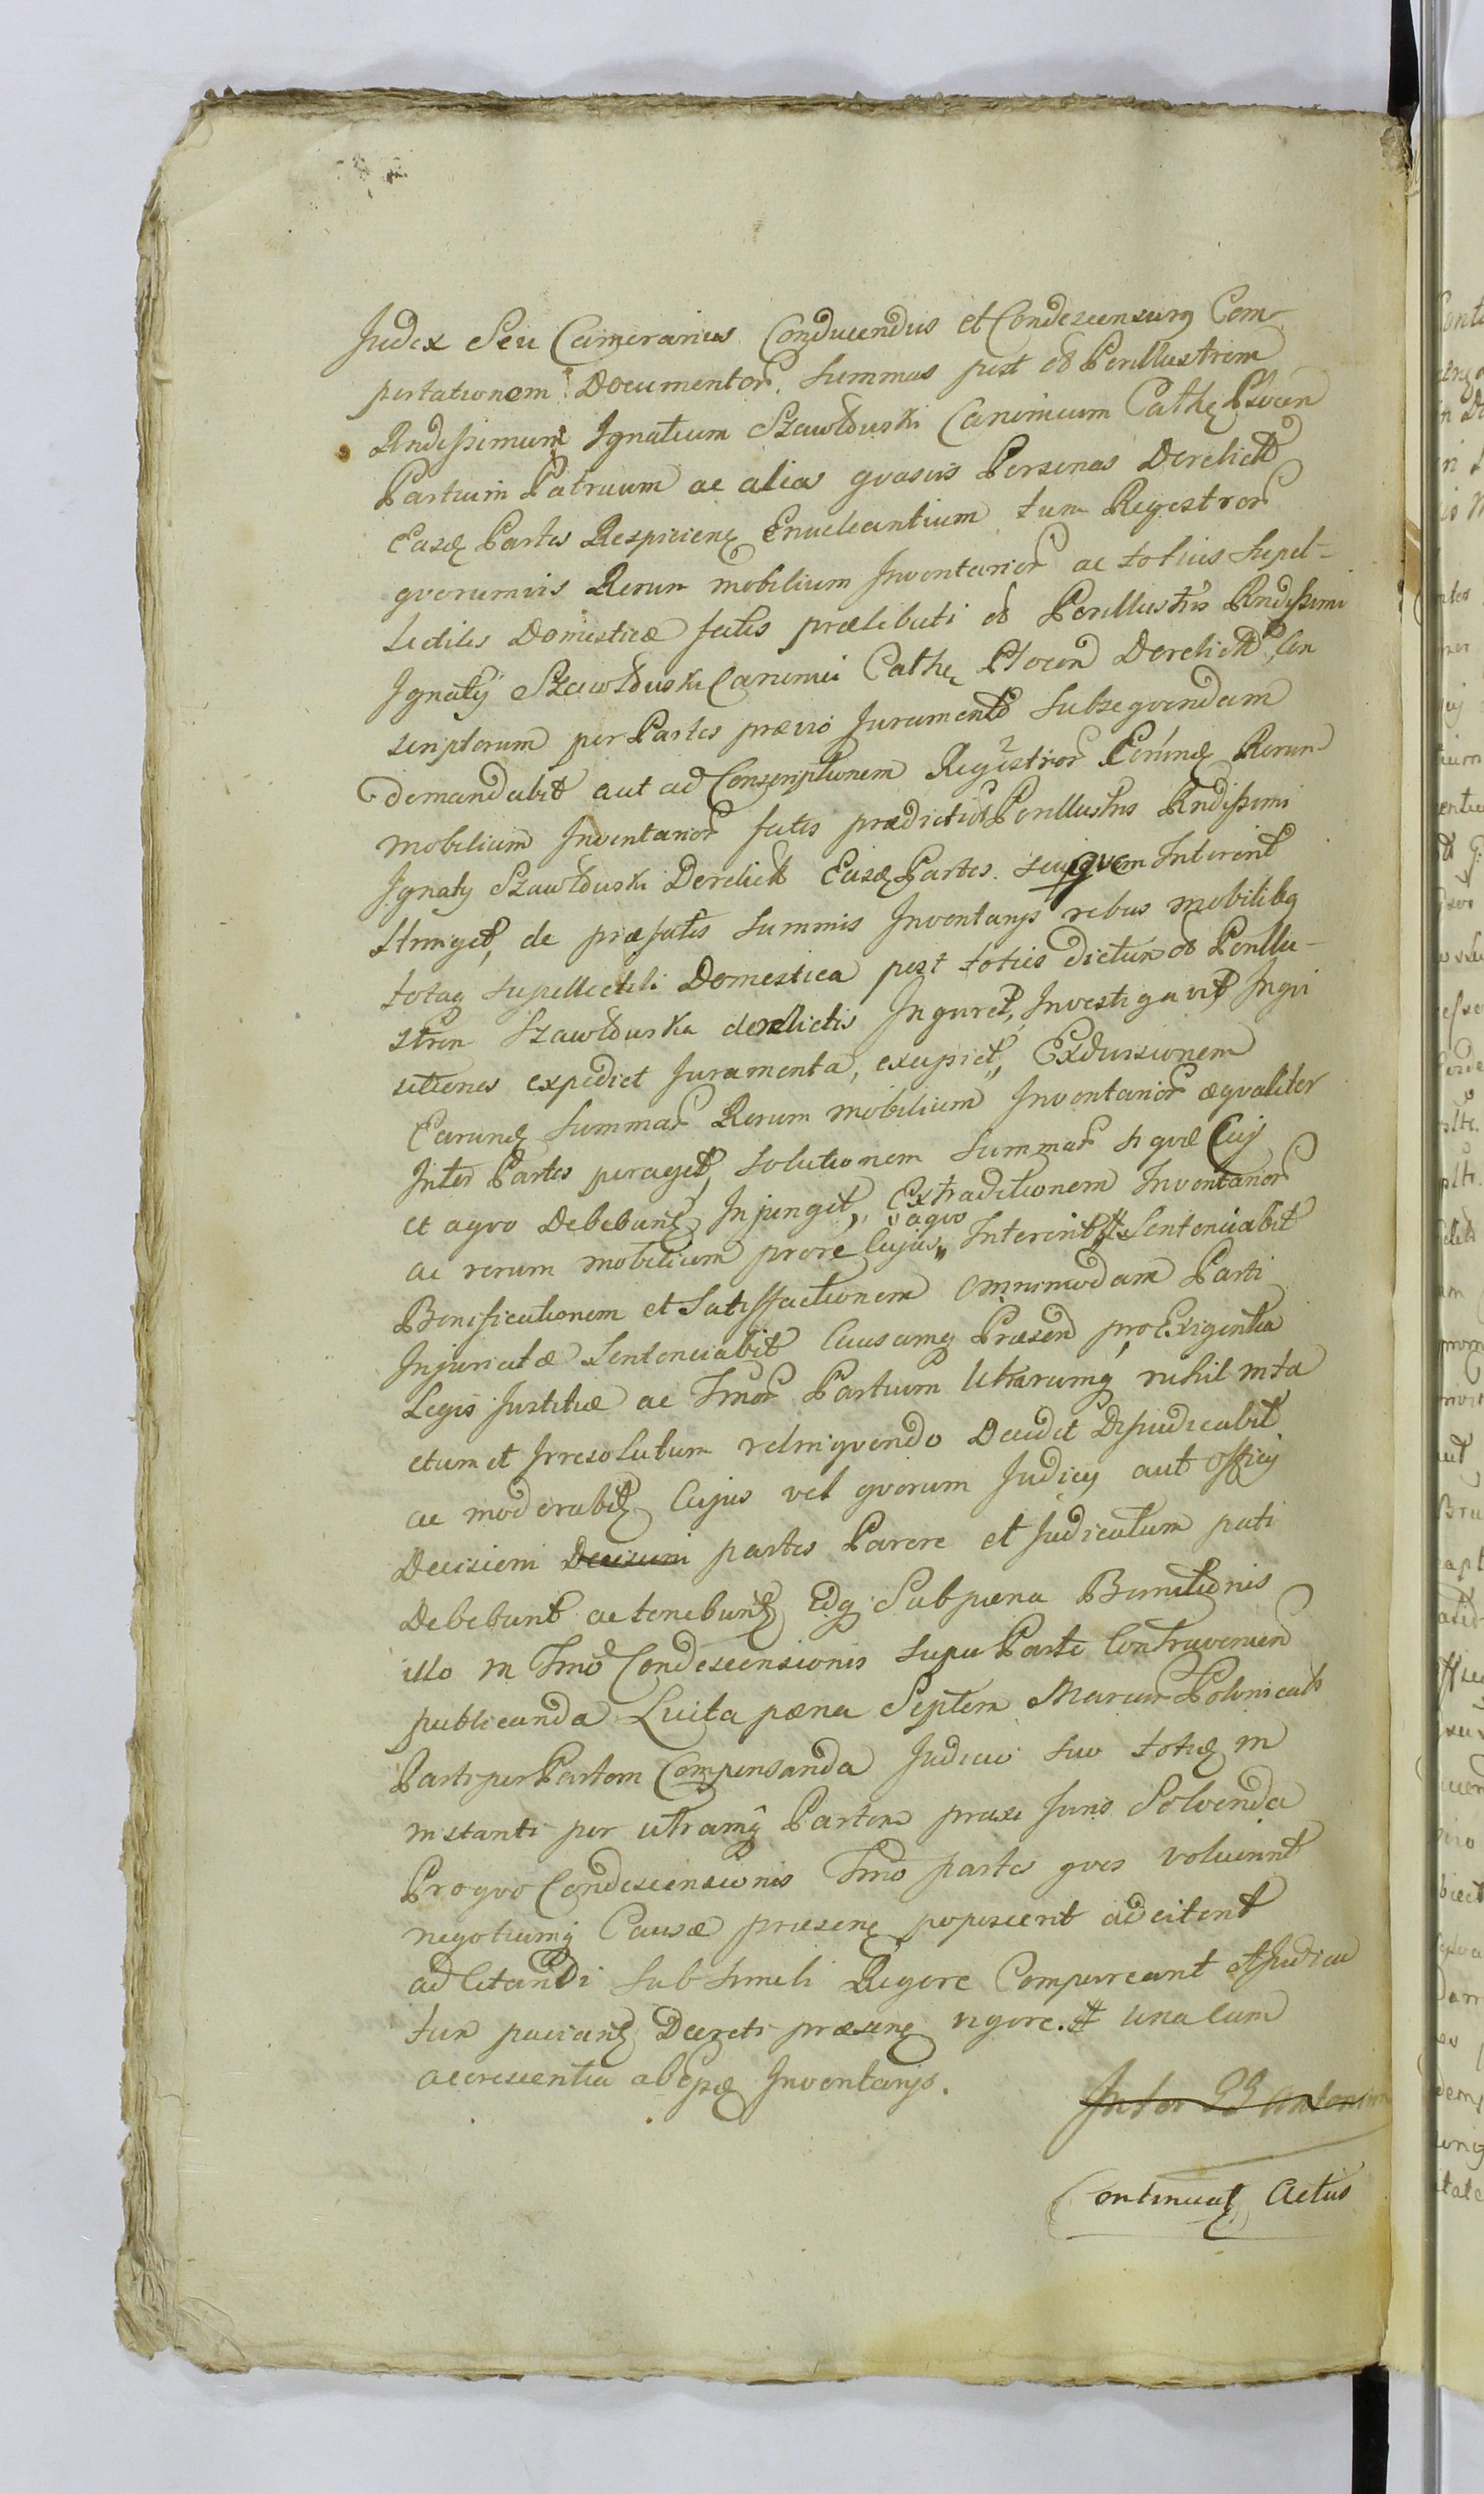 Judex Seu Camerarius Conducendus et Condescensurq Com-
portationem Documentor. Summas post od Perillustrem
Rndissimum Ignatium Szawłduski Canonicum Cathę Plocen
Partium Patruum ac alias qvasvis Personas Derelict
Easdę Partes Respicienę Enucleantium tum Regestror
qvorumvis Rerum mobilium Inventarior ac totius Supel-
lectilis Domesticæ fatis prælibati od Perillustris Rndissimi
Ignatij Szawłduski Canonici Cathę Plocen Derelict, Con
scriptorum per Partes prævio Juramento Subseqvendam
demandabit aut ad Conscriptionem Regestror Eorundę Rerum
mobilium Inventarior fatis prædicti od Perillustris Rndissimi
Ignatij Szawłduski Derelict Easdę Partes seu qvem Intererit
Stringet, de præfatis Summis Inventarijs rebus mobilibq
totaq Supellectili Domestica post toties dictum od Perillu-
strem Szawłduski derelictis Inqviret, Investigavit Inqvi
sitiones expediet Juramenta, excipiet, Exdivisionem
Earundę Summar Rerum mobilium Inventarior æqvaliter
Inter Partes peraget, Solutionem Summar si qvæ Cuij
et a qvo Debebuntę Injunget, Extraditionem Inventarior
ac rerum mobilium pro re Cujus „a qvo„ Intererit # Sentenciabit
Bonificationem et Satisfactionem omnimodam Parti
Injuriatæ Sentenciabit Causamq Præsen pro Exigentia
Legis Justitiæ ac Tmor Partium Utrarumq nihil inta
ctum et Irresolutum relinqvendo Decidet Dijudicabit
ac moderabitę Cujus vel qvorum Judicij aut Officij
Decisioni Decisioni partes Parere et Judicatum pati
Debebunt ac tenebuntę Idq Sub pæna Bannitionis
illo in Tmo Condescensionis supra Parte Contravenien
publicanda Luita pæna Septem Marcar Polonicals
Parti per Partem Compensanda Judicio suo totidę in
instanti per utramq Partem præse Juris Solvenda
Pro qvo Condescensionis Tmo partes qvos voluerint
negotiumq Causæ præsenę poposcerit adcitent
ad Citandi Sub simili Rigore Compareant et Judica
tum paciantę Decreti præsenę vigore. # una cum
accrescentia ab ejsdę Inventarijs.
Inter GG Antonium
Continuatę Actus